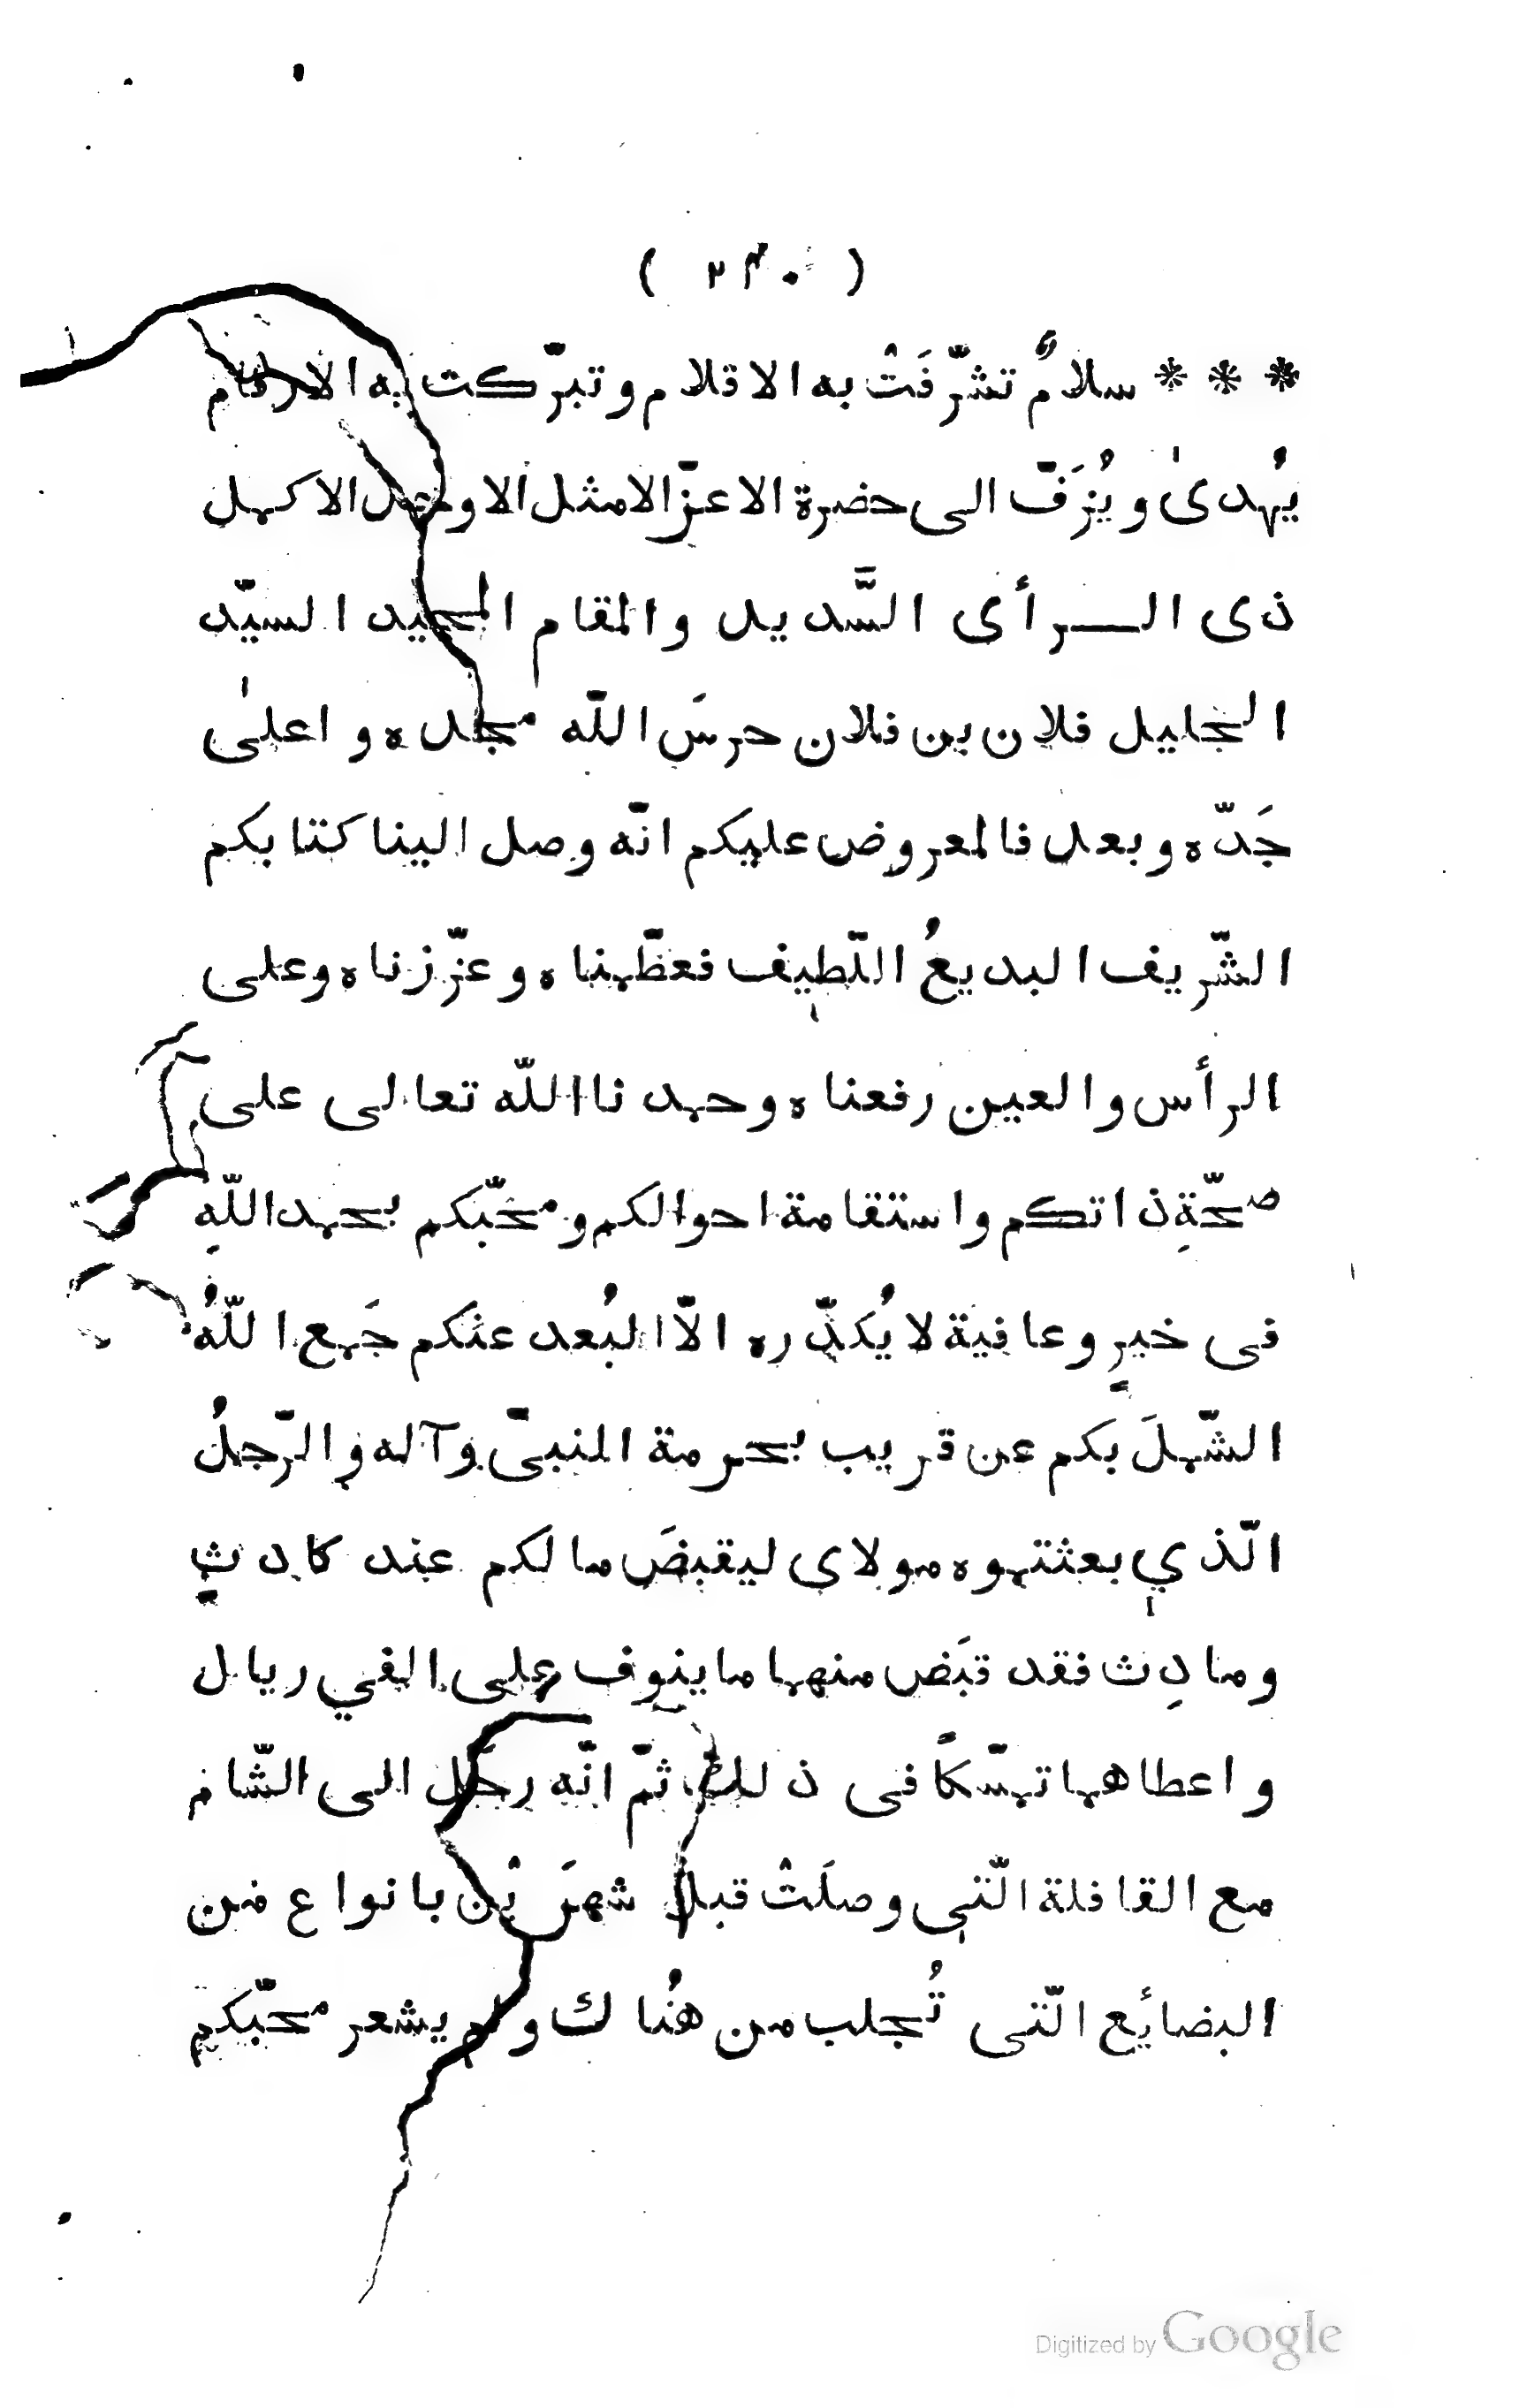 ( ٣٣٠ )
* * * سلامٌ تشرّفَتْ به الاقلام وتبرّكت به الارقام
يُهدىٰ ويُزَفّ الى حضرة الاعزّ الامثل الاوحد الاكمل
ذى الـــرأى السَّديد والمقام المجيد السيّد
الجليل فلان بن فلان حرسَ اللّه مجده واعلىٰ
جَدّه وبعد فالمعروض عليكم انّه وصل الينا كتابكم
الشّريف البديعُ اللّطيف فعظّمناه وعزّزناه وعلى
الرأس والعين رفعناه وحمدنا اللّه تعالى على
صحّةِ ذاتكم واستقامة احوالكم ومحبّكم بحمد اللّهِ
فى خيرٍ وعافية لا يُكدّره الّا البُعد عنكم جَمع اللّهُ
الشّملَ بكم عن قريب بحرمة النبىّ وآله والرّجلُ
الّذي بعثتموه مولاى ليقبضَ مالكم عند كادثٍ
ومادِث فقد قبَض منهما ما ينوف على الفي ريال
واعطاهما تمسّكاً فى ذلك ثمّ انّه رحَل الى الشّام
مع القافلة الّتى وصلَتْ قبل شهرَيْن بانواع من
البضائع الّتى تُجلب من هُناك ولم يشعر محبّكم
Digitized by Google